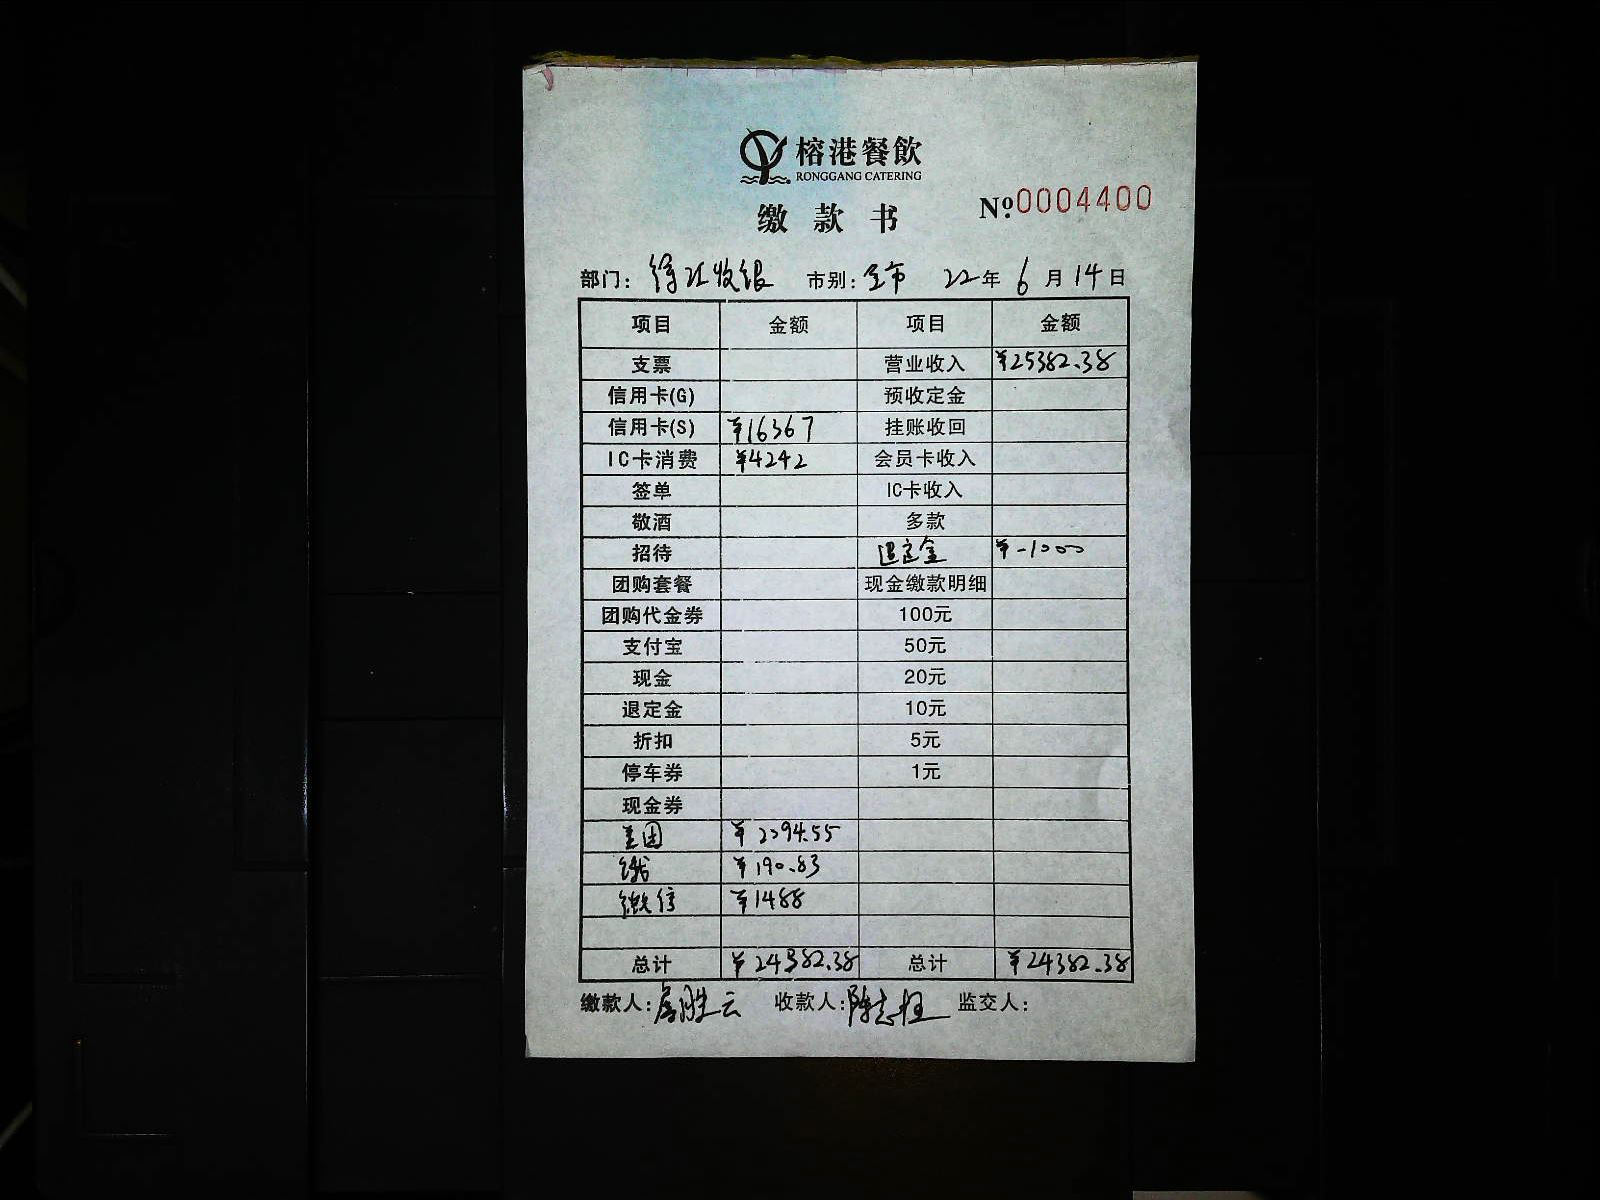 榕港餐飲
RONGGANG CATERING
缴款书
№0004400
部门: 徐汇收银 市别: 全市 22年6月14日
项目 金额 项目 金额
支票 营业收入 ¥25382.38
信用卡(G) 预收定金
信用卡(S) ¥16367 挂账收回
IC卡消费 ¥4242 会员卡收入
签单 IC卡收入
敬酒 多款
招待 退定金 ¥-1000
团购套餐 现金缴款明细
团购代金券 100元
支付宝 50元
现金 20元
退定金 10元
折扣 5元
停车券 1元
现金券
美团 ¥2094.55
饿 ¥190.83
微信 ¥1488
总计 ¥24382.38 总计 ¥24382.38
缴款人: 收款人: 监交人: